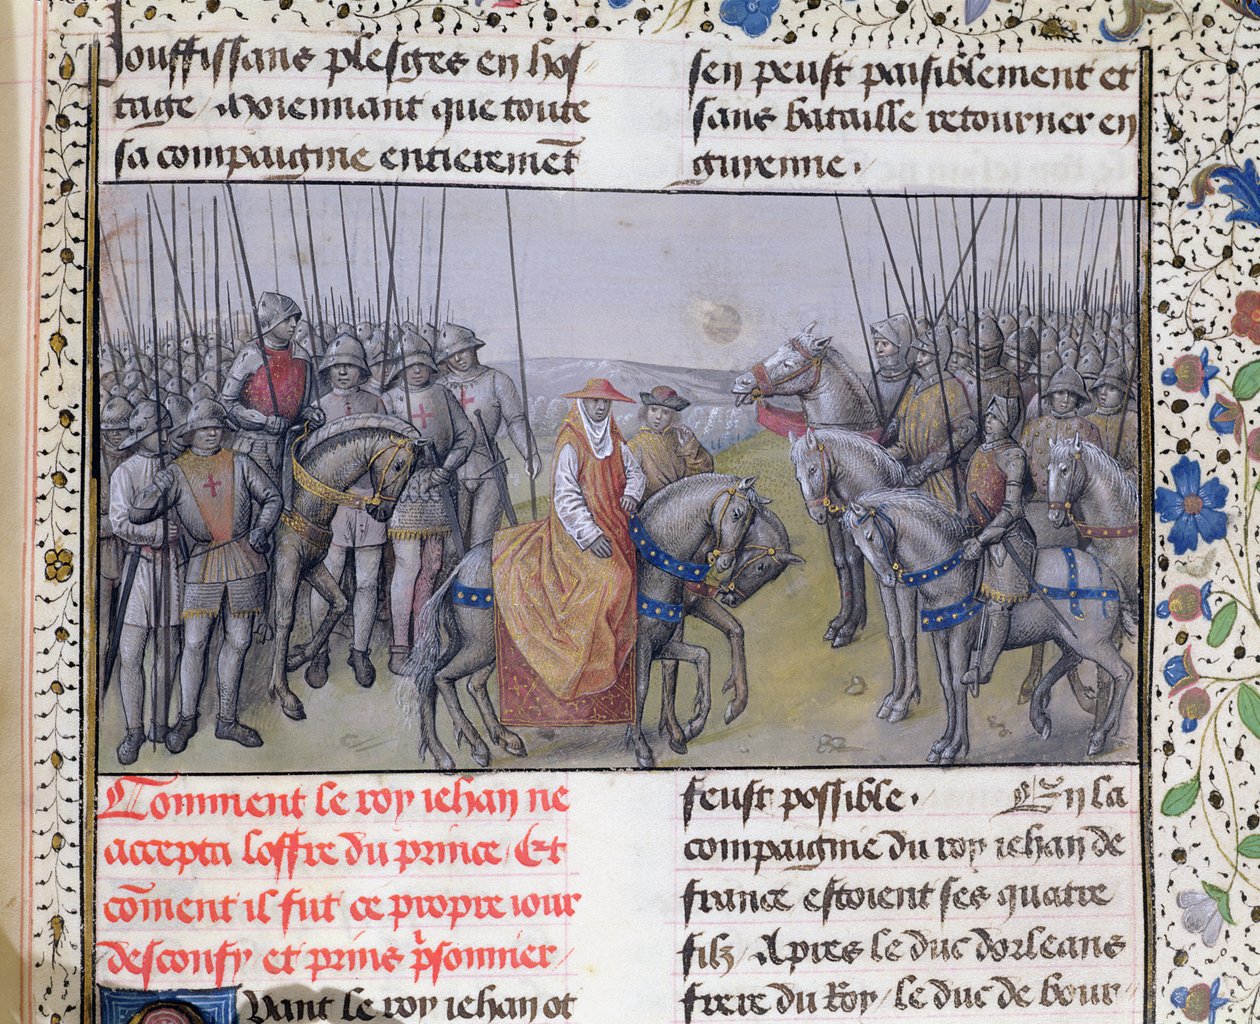 souffissans plesges en hos
tage / Moiennant que toute
sa compaignie entieremēt
sen peust paisiblement et
sans bataille retourner en
guienne .
Comment le roy iehan ne
accepta loffre du prince / Et
cōment il fut ce propre iour
desconfy et prins prisonnier /
Quant le roy iehan ot
feust possible . En la
compaignie du roy iehan de
france estoient ses quatre
filz / Apres le duc dorleans
frere du Roy / le duc de bour